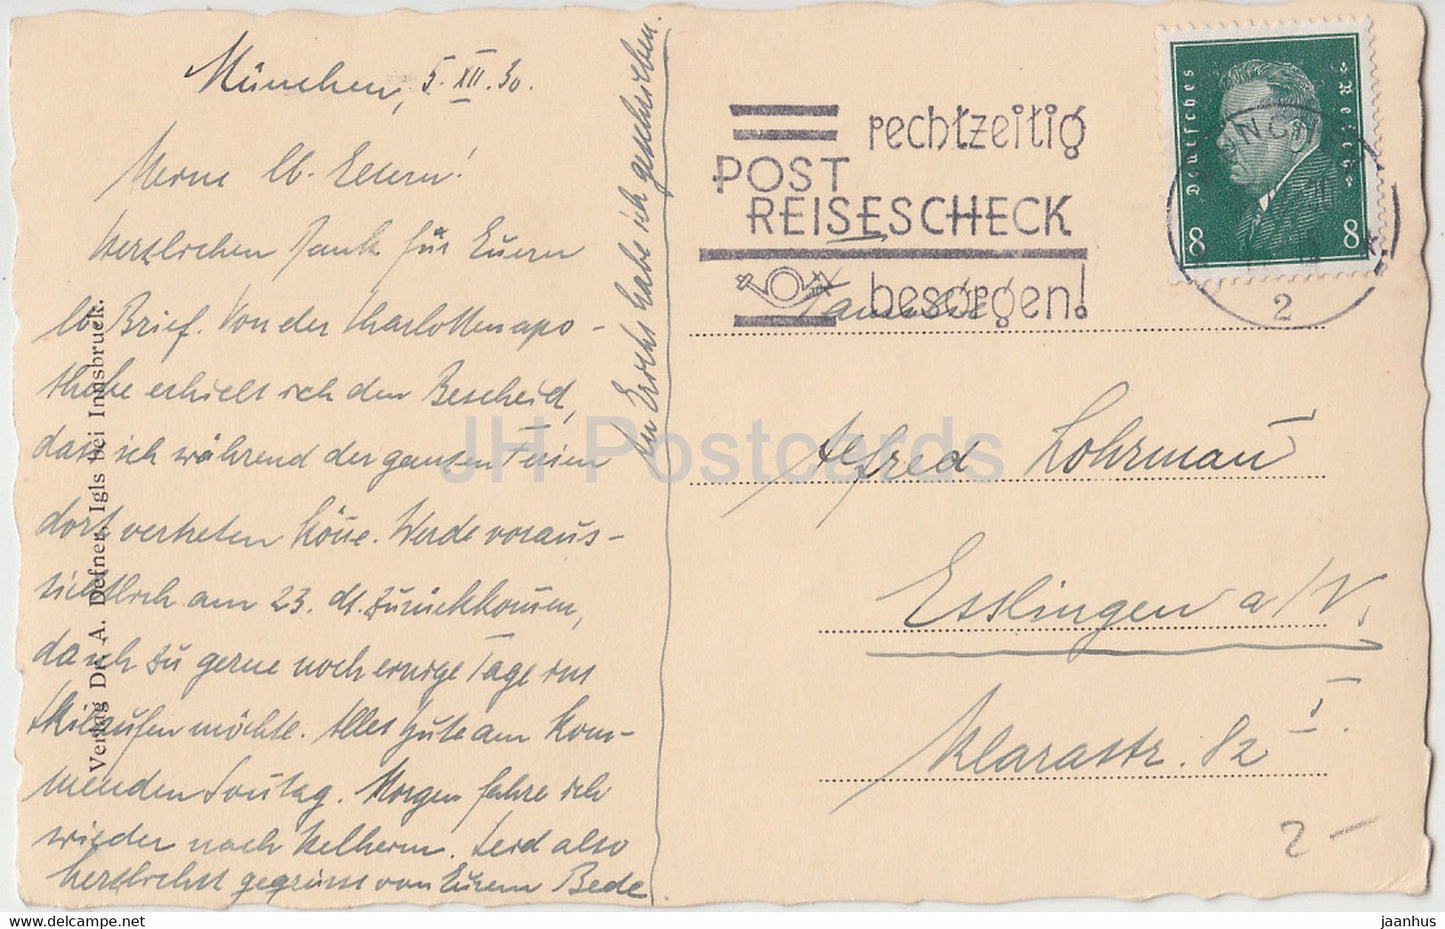 München, 5. XII. 30.
Meine lb. Eltern!
Herzlichen Dank für Euern
lb. Brief. Von der Charlottenapo-
theke erhielt ich den Bescheid,
dass ich während der ganzen Ferien
dort vertreten könne. Werde voraus-
sichtlich am 23. ds. zurückkommen,
da ich zu gerne noch einige Tage ins
Skilaufen möchte. Alles Gute am kom-
menden Sonntag. Morgen fahre ich
wieder nach Kelheim. Seid also
herzlichst gegrüsst von Eurem Bede
habe ich geschrieben.
Verlag Dr. A. Defner, Igls bei Innsbruck.
rechtzeitig
POST
REISESCHECK
besorgen!
Deutsches Reich
8 8
2
Familie
Alfred Lohrmann
Esslingen a/N.
Klarastr. 82 I.
2 -
JH Postcards
www.delcampe.net
jaanhus